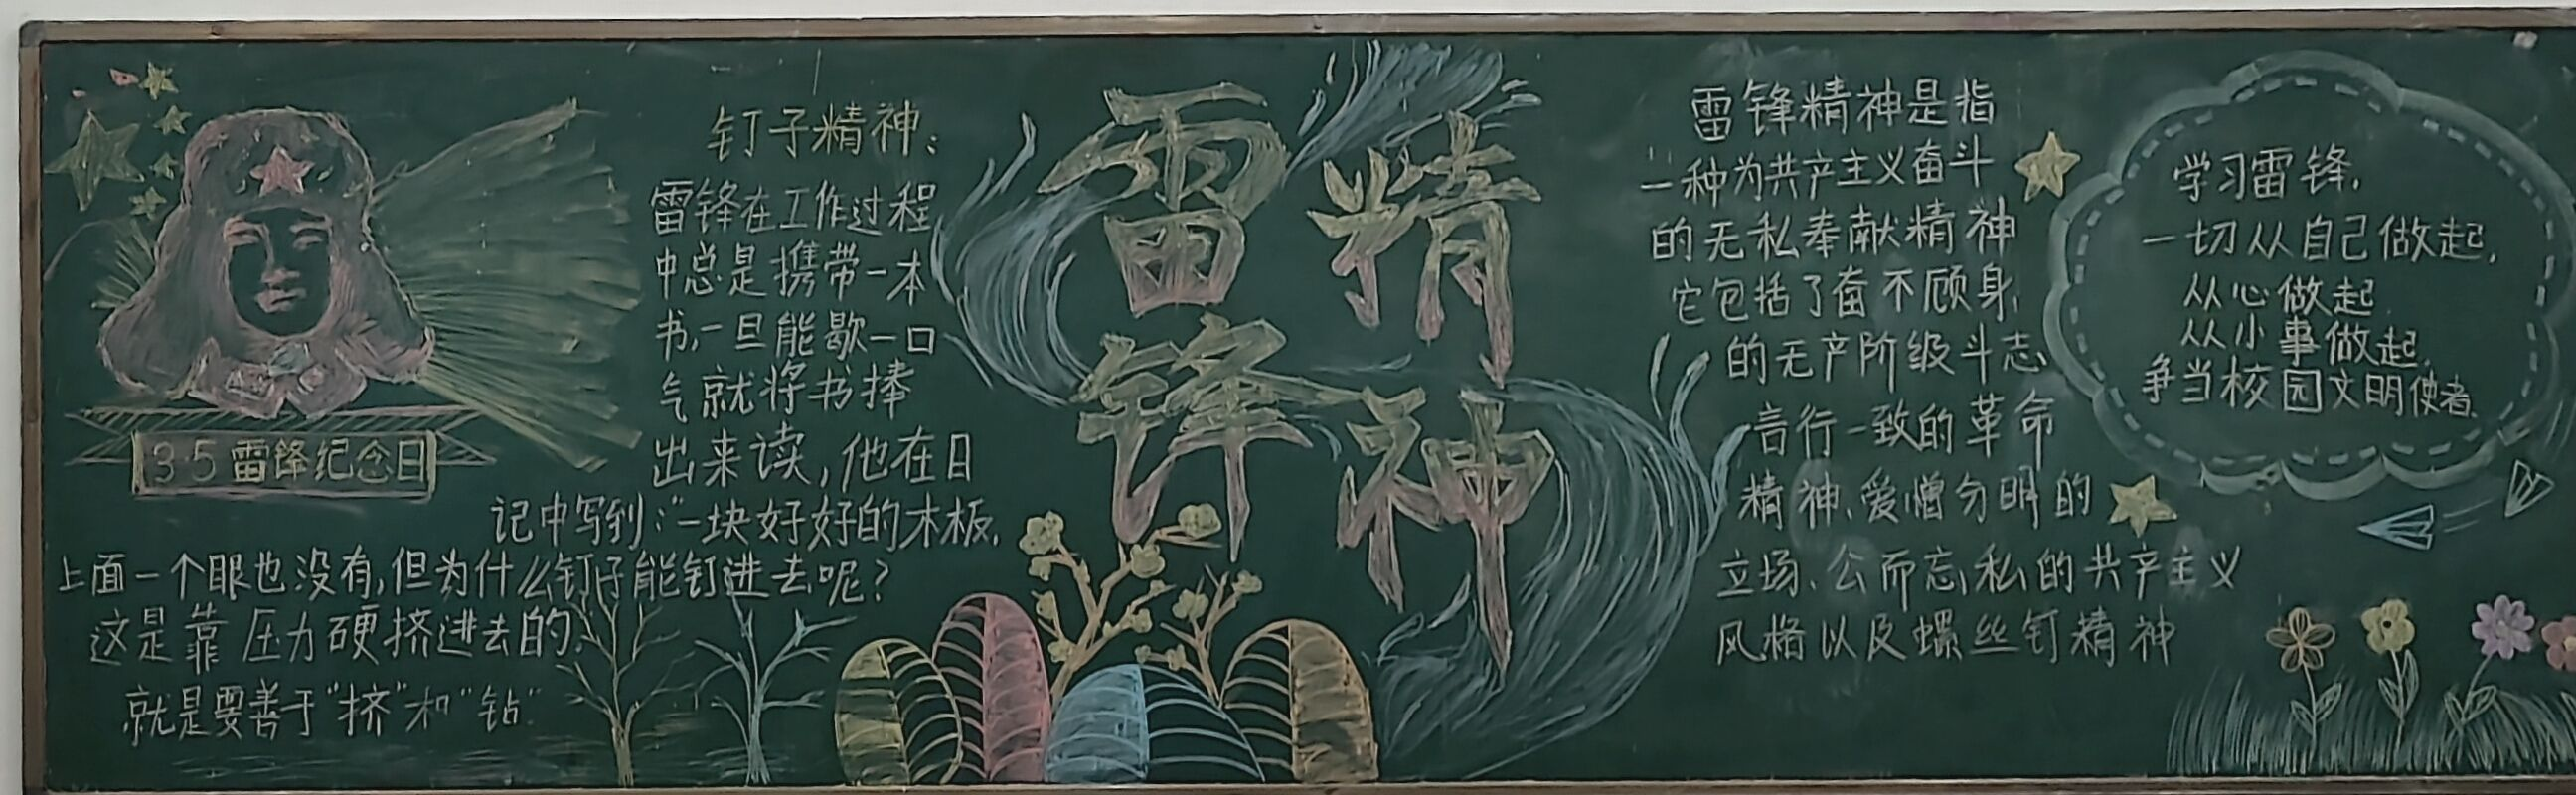 3·5雷锋纪念日
钉子精神：
雷锋在工作过程
中总是携带一本
书，一旦能歇一口
气就将书捧
出来读，他在日
记中写到：“一块好好的木板，
上面一个眼也没有，但为什么钉子能钉进去呢？
这是靠压力硬挤进去的。”
就是要善于“挤”和“钻”
雷锋
精神
雷锋精神是指
一种为共产主义奋斗
的无私奉献精神
它包括了奋不顾身，
的无产阶级斗志
言行一致的革命
精神、爱憎分明的
立场、公而忘私的共产主义
风格以及螺丝钉精神
学习雷锋，
一切从自己做起，
从心做起，
从小事做起，
争当校园文明使者。